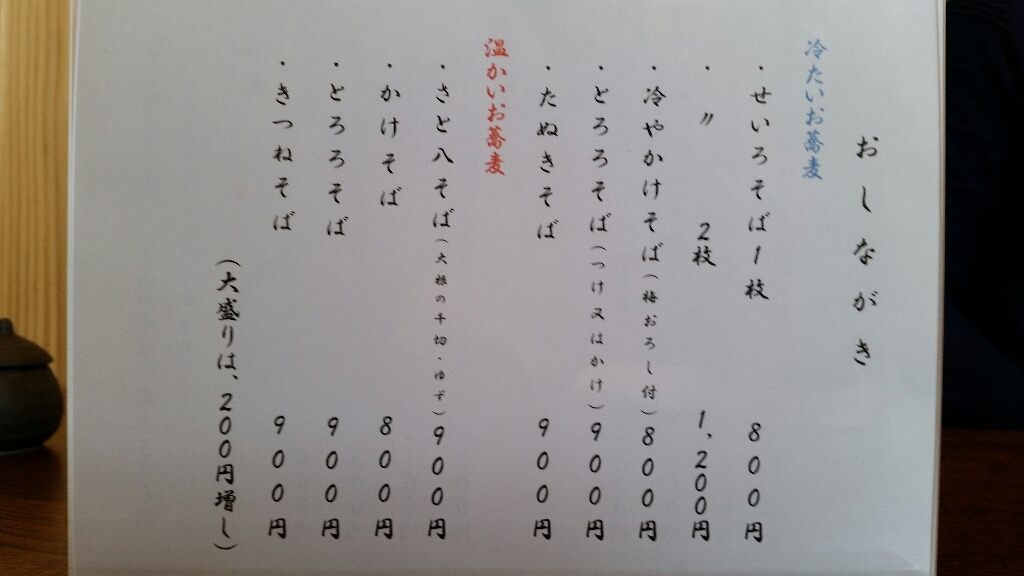 おしながき
冷たいお蕎麦
・せいろそば1枚 800円
・〃 2枚 1,200円
・冷やかけそば(梅おろし付)800円
・とろろそば(つけ又はかけ)900円
・たぬきそば 900円
温かいお蕎麦
・さと八そば(大根の千切・ゆず)900円
・かけそば 800円
・とろろそば 900円
・きつねそば 900円
(大盛りは、200円増し)